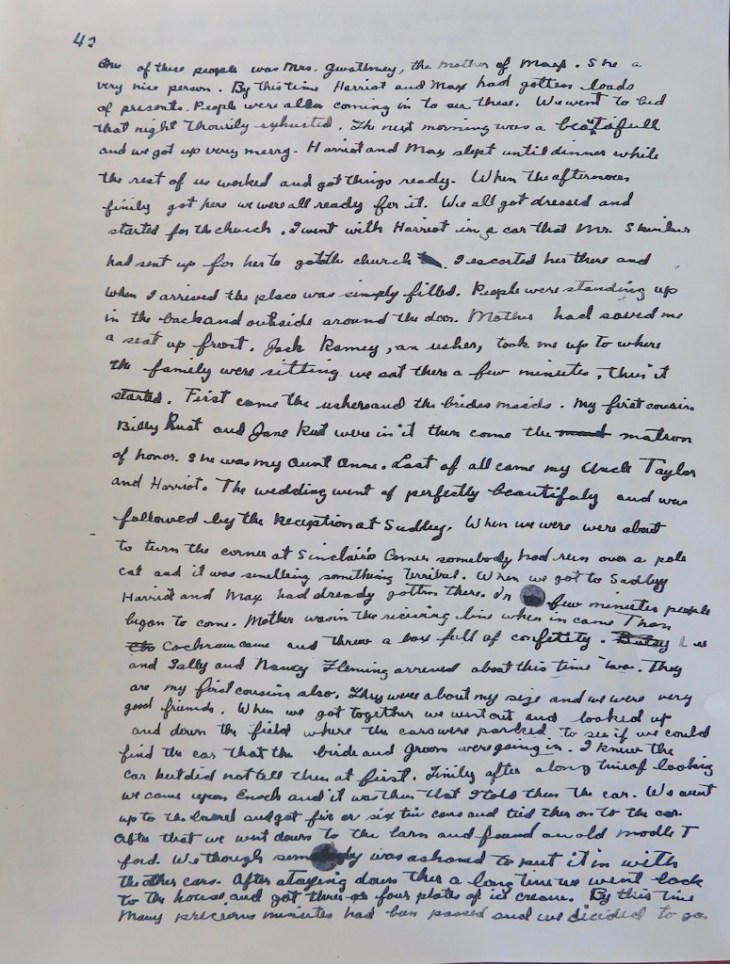 42
One of these people was Mrs. Gwathmey, the mother of Max. She a
very nice person. By this time Harriot and Max had gotten loads
of presents. People were allso coming in to see these. We went to bed
that night Thourily exhusted. The next morning was a beatafull
and we got up very merry. Harriot and Max slept until dinner while
the rest of us worked and got things ready. When the afternoon
finily got here we were all ready for it. We all got dressed and
started for the church. I went with Harriot in a car that Mr.
had sent up for her to go to the church. I escorted her there and
when I arrived the place was simply filled. People were standing up
in the back and outside around the door. Mother had saved me
a seat up front. Jack Ramey, an usher, took me up to where
the family were sitting we sat there a few minutes, then it
started. First came the ushers and the brides maids. My first cousin
Billy Rust and Jane Rust were in it then come the matron
of honor. She was my Aunt Anne. Last of all came my Uncle Taylor
and Harriot. The wedding went of perfectly beautifaly and was
followed by the Reception at Sudley. When we were were about
to turn the corner at Sinclair's Corner somebody had run over a pole
cat and it was smelling somithing terribal. When we got to Sudley
Harriot and Max had dready gotten there. In few minutes people
began to come. Mother was in the reciving line when in came Thom
Cochram came and threw a box full of confetity. Betsy Lee
and Sally and Nancy Fleming arrived about this time two. They
are my first cousins also. They were about my size and we were very
good friends. When we got together we went out and looked up
and down the field where the cars were parked to see if we could
find the car that the bride and groom were going in. I knew the
car but did not tell them at first. Finily after a long time of looking
we came upon Enoch and it was then that I told them the car. We went
up to the barrel and got five or six tin cans and tied them on to the car.
After that we went down to the barn and found an old modle T
ford. We though somebody was ashamed to put it in with
the other cars. After staying down ther a long time we went back
to the house, and got three or four plates of ice cream. By this time
Many precious minutes had ben passed and we dicided to go